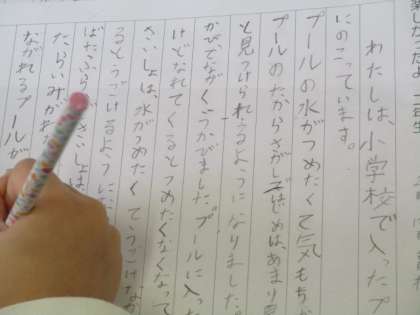 楽しかったよ 二年生
わたしは、小学校で入ったプ
にのこっています。
プールの水がつめたくて気もちが
プールのたからさがしではじめは、あまり
と見つけられるようになりました。プ
かべでながくうかびました。プールに入った
けどなれてくるとつめたくなくなって
さいしょは、水がつめたくてうごけなか
るとうごけるようにな
ばたふら さいしょは
たらいみがわ
ながれるプールが